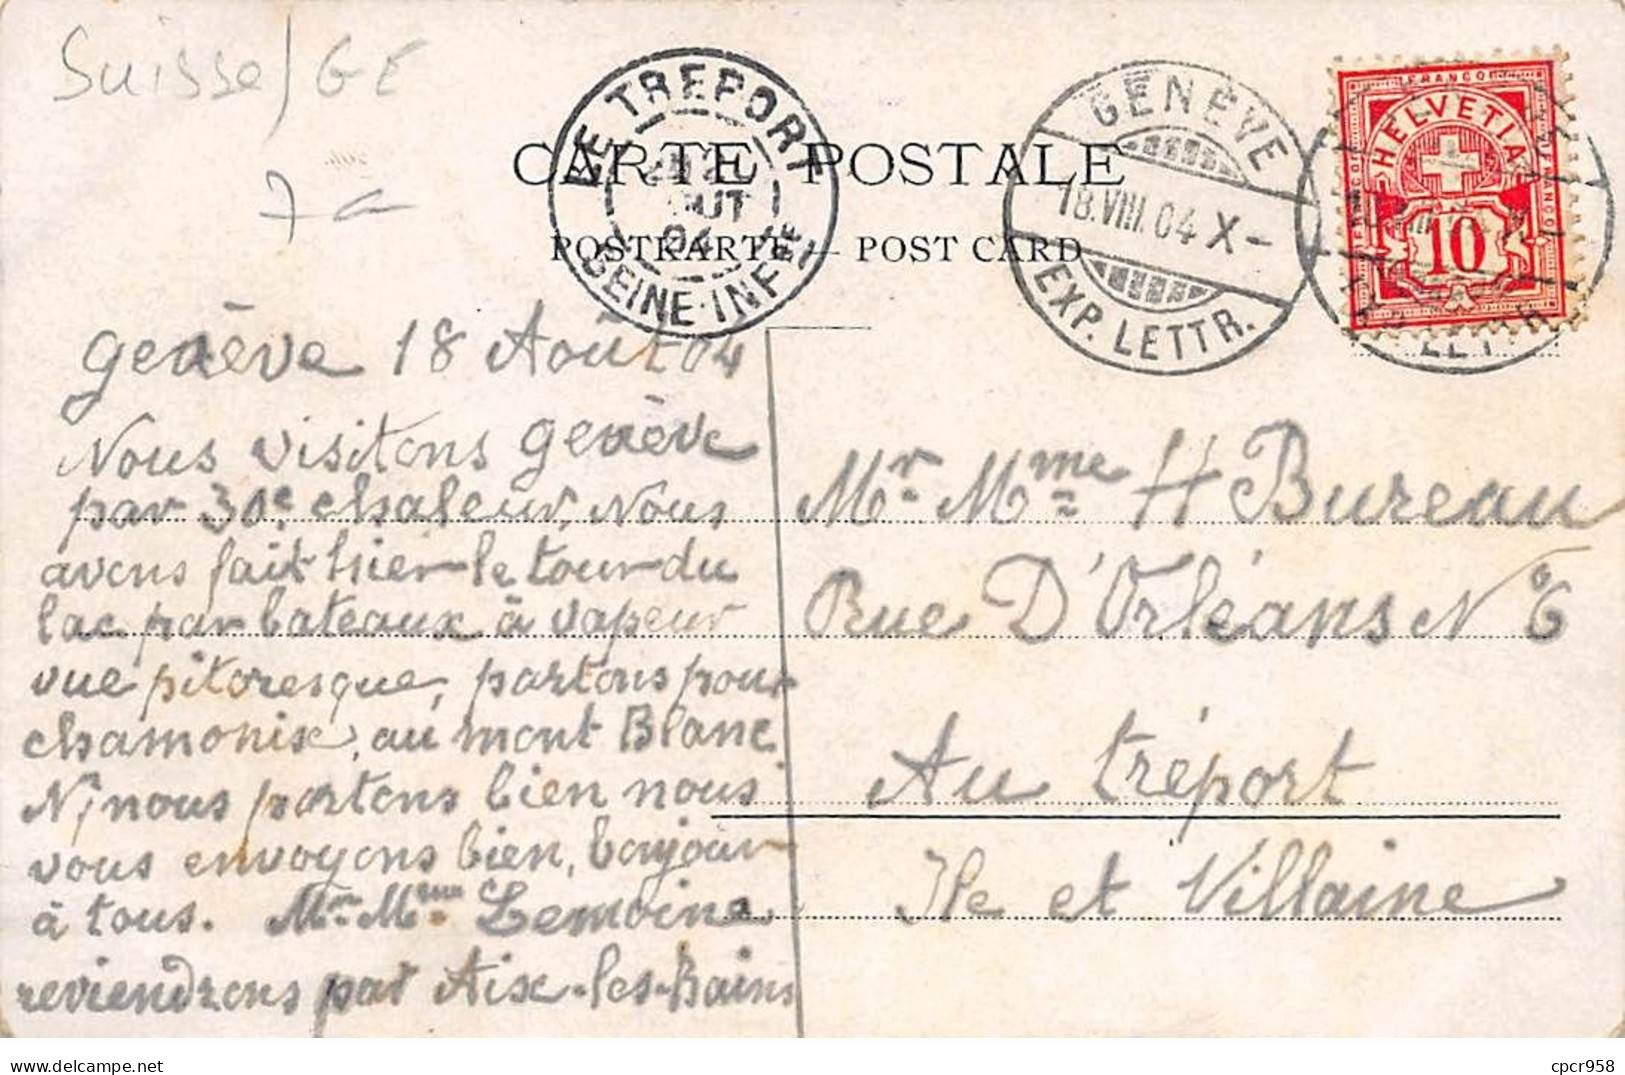 Suisse/GE
7-
LE TREPORT
OUT
04
SEINE-INFRE
CARTE POSTALE
POSTKARTE — POST CARD
GENÈVE
18.VIII.04 X-
EXP. LETTR.
FRANCO
HELVETIA
FRANCO
10
genève 18 Août 04
Nous visitons genève
par 30e chaleur, Nous
avons fait hier le tour du
lac par bateaux à vapeur
vue pitoresque, partons pour
chamonix, au mont Blanc
nous portons bien nous
vous envoyons bien, bonjour
à tous. Mr. Mme Lemoine
reviendrons par Aix-les-Bains
Mr. Mme H Bureau
Rue D'Orléans N°6
Au tréport
Ile et Villaine
cpcr958